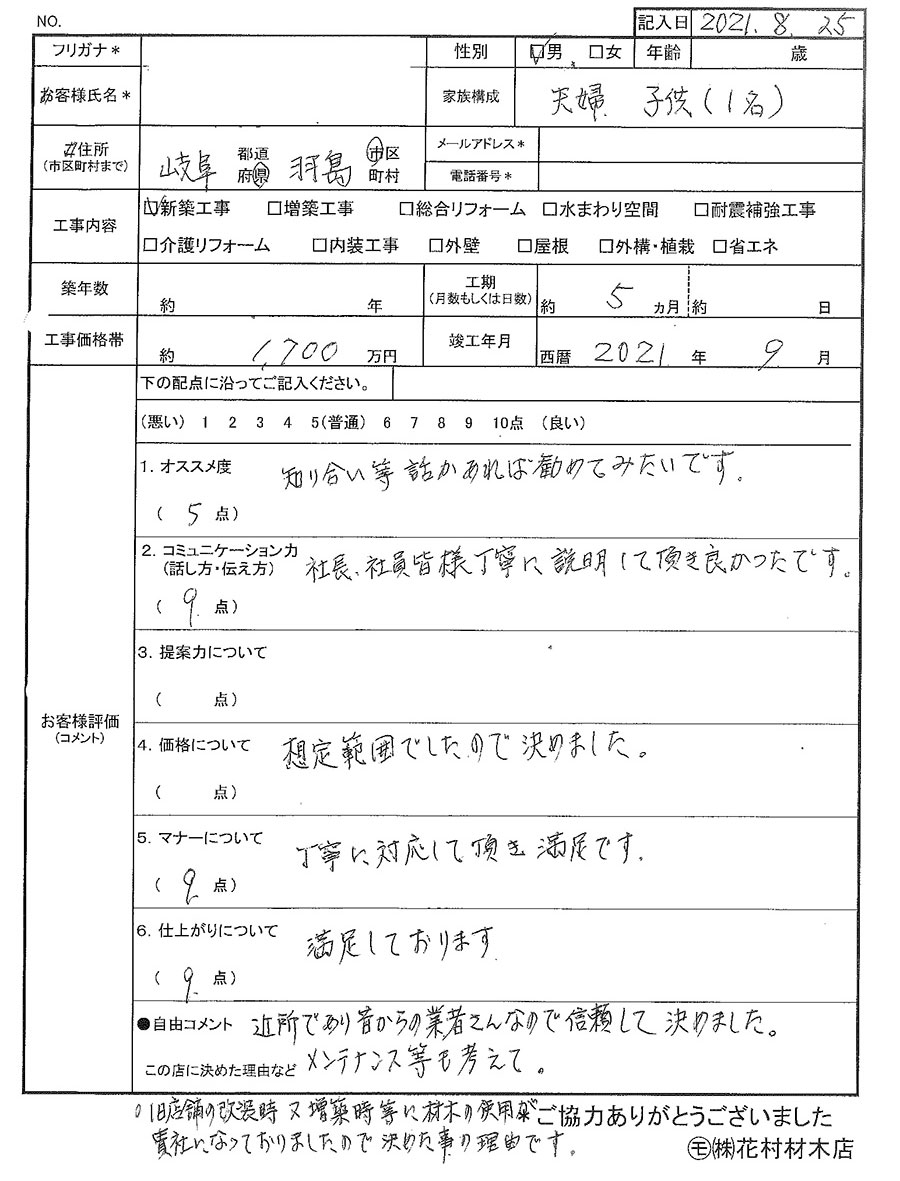 NO.
記入日 2021. 8. 25
フリガナ* 性別 ☑男 □女 年齢 歳
お客様氏名* 家族構成 夫婦 子供(1名)
ご住所 岐阜 都道府県 羽島 市区町村 メールアドレス*
(市区町村まで) 電話番号*
工事内容 ☑新築工事 □増築工事 □総合リフォーム □水まわり空間 □耐震補強工事
□介護リフォーム □内装工事 □外壁 □屋根 □外構・植栽 □省エネ
築年数 約 年 工期(月数もしくは日数) 約 5 ヵ月 約 日
工事価格帯 約 1,700 万円 竣工年月 西暦 2021 年 9 月
お客様評価
(コメント)
下の配点に沿ってご記入ください。
(悪い) 1 2 3 4 5(普通) 6 7 8 9 10点 (良い)
1. オススメ度 知り合い等 話があれば勧めてみたいです.
( 5 点)
2. コミュニケーション力
(話し方・伝え方) 社長、社員皆様丁寧に説明して頂き良かったです。
( 9 点)
3. 提案力について
( 点)
4. 価格について 想定範囲でしたので決めました。
( 点)
5. マナーについて 丁寧に対応して頂き満足です.
( 9 点)
6. 仕上がりについて 満足しております
( 9 点)
●自由コメント 近所であり昔からの業者さんなので信頼して決めました。
この店に決めた理由など メンテナンス等も考えて。
○旧店舗の改装時又増築時等に材木の使用が ご協力ありがとうございました
貴社になっておりましたので決めた事の理由です.
㋲㈱花村材木店